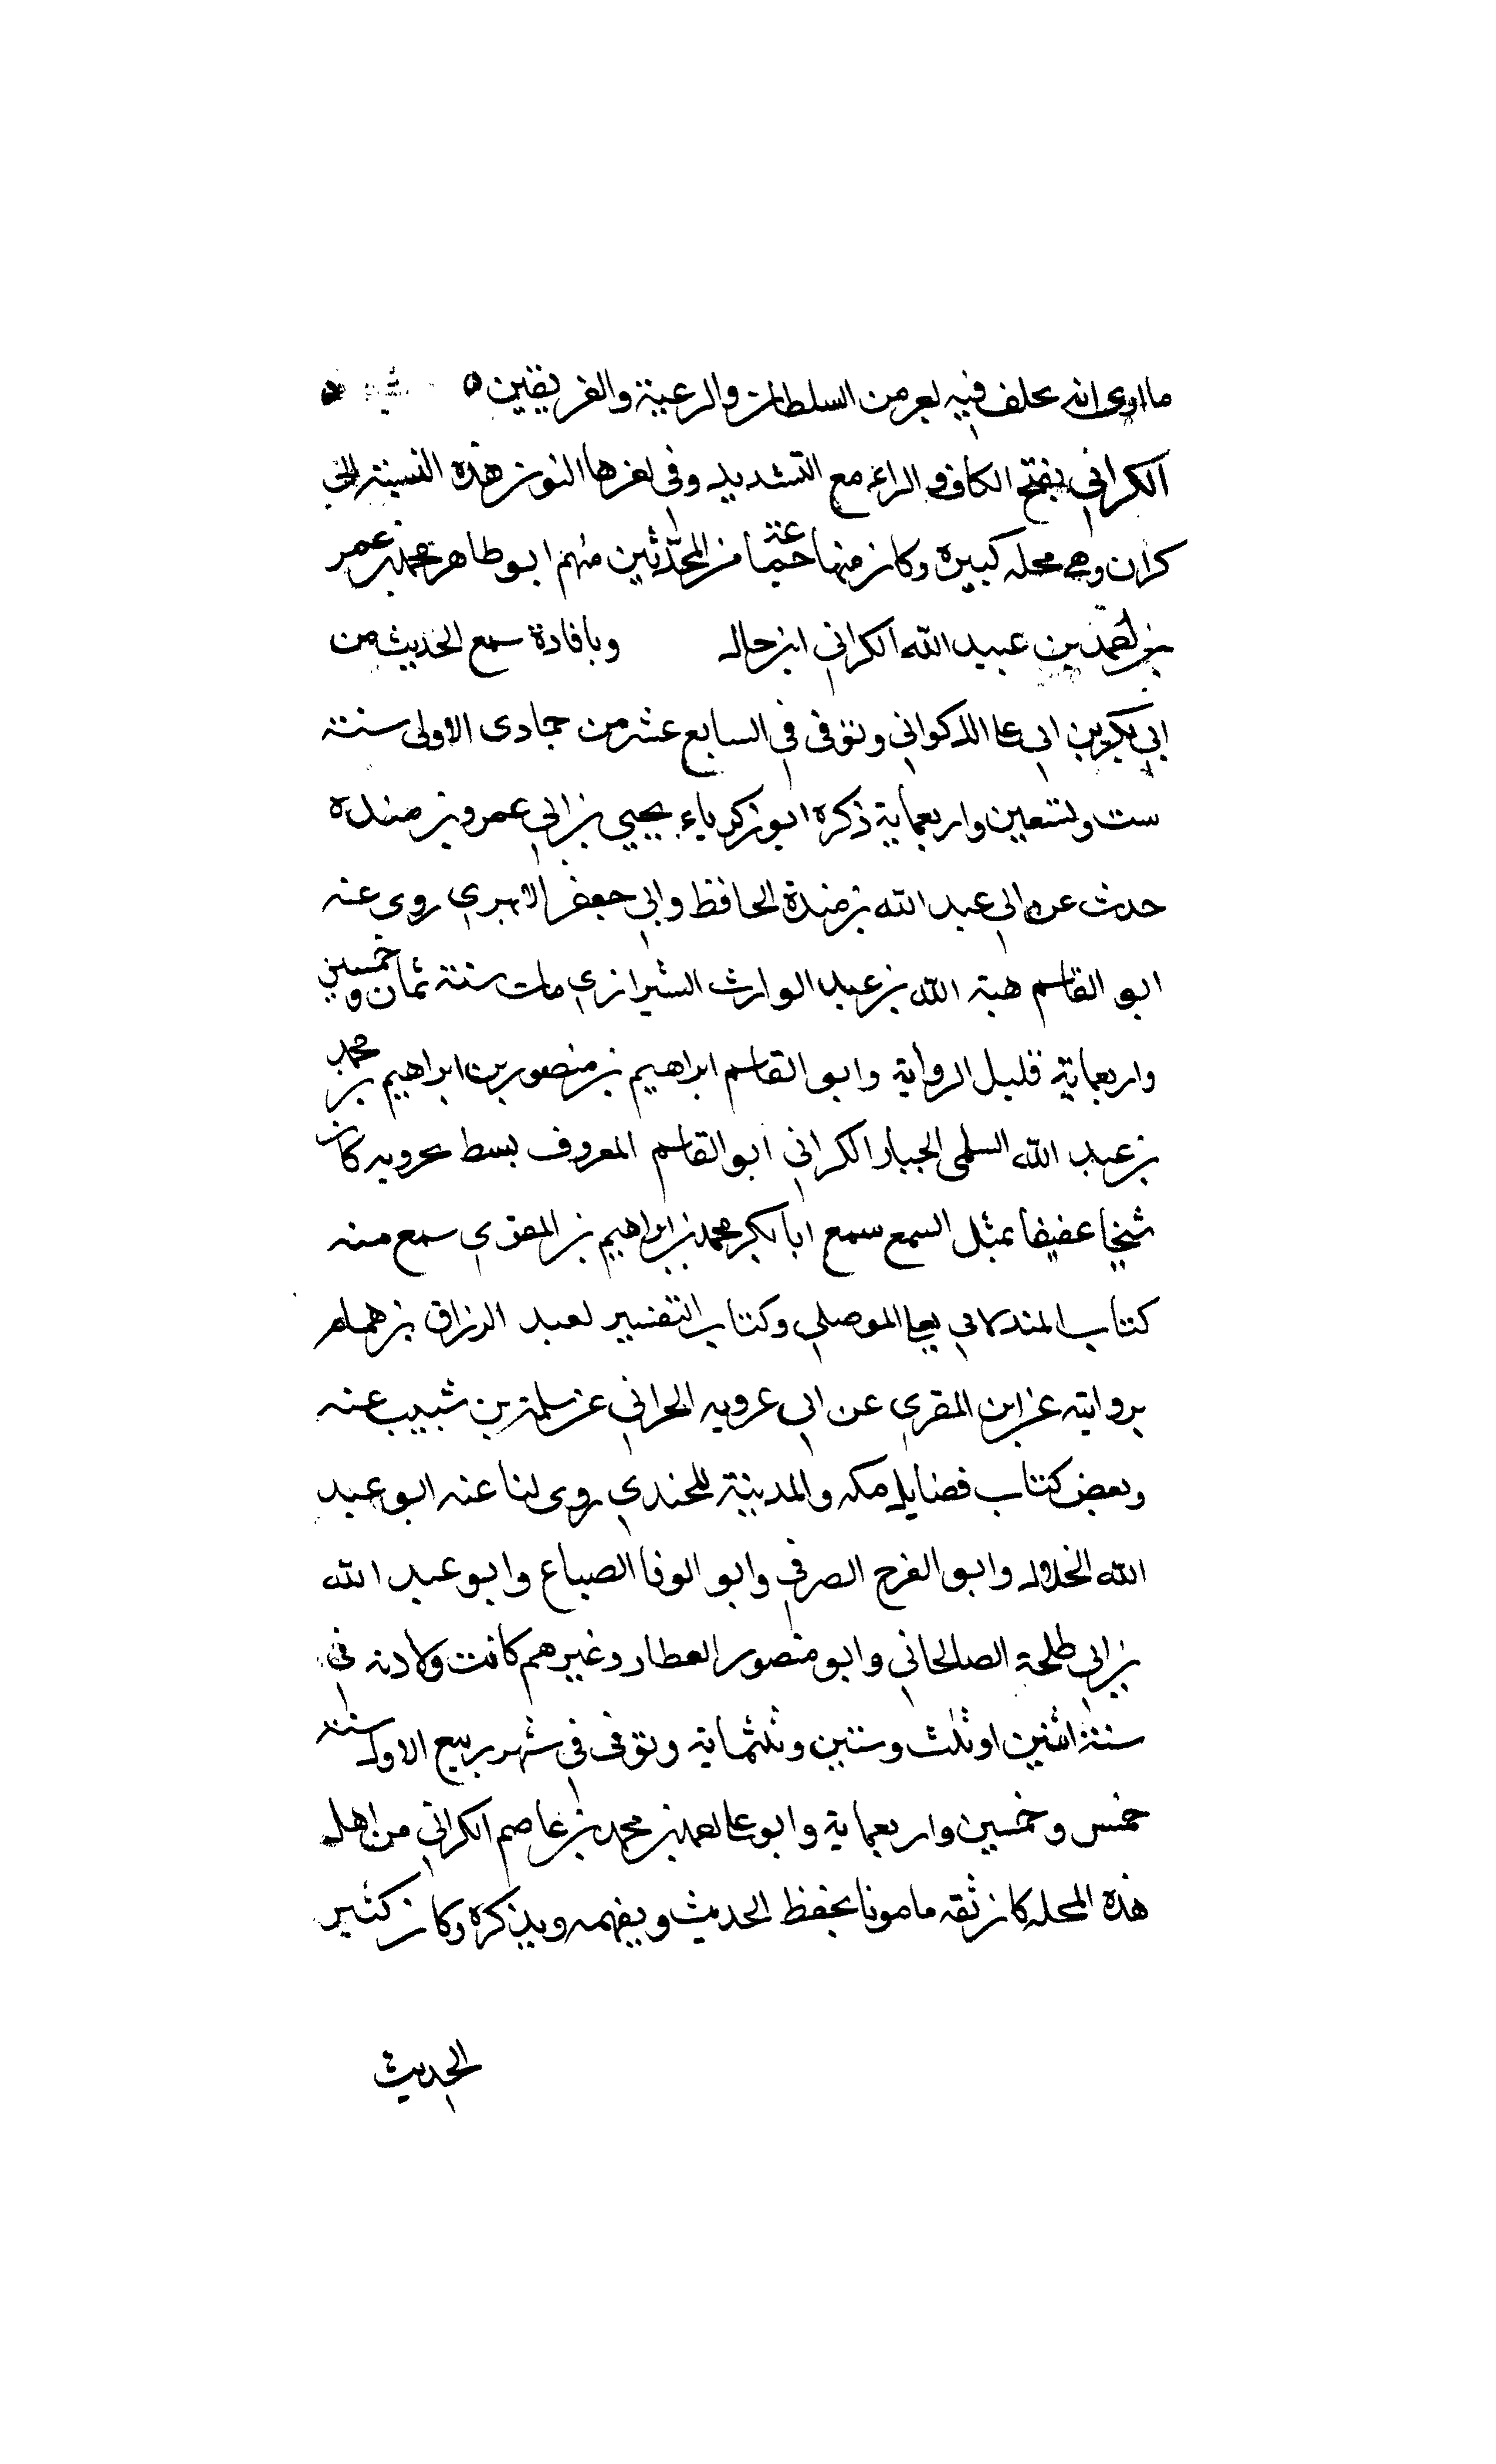 ما ادعى انه يحلف فيه لعر من السلطان والرعية والفريقين ه
الكراني بفتح الكاف والراء مع التشديد وفي اخرها النون هذه النسبة الى
كران وهي محله كبيرة وكان منها جماعة من المحدثين منهم ابو طاهر محمد بن عمر
بن احمد بن عبيد الله الكراني ابن خال وبافادة سمع الحديث من
ابي بكر بن ابي علي الذكواني وتوفي في السابع عشر من جمادى الاولى سنة
ست وتسعين واربعماية ذكره ابو زكرياء يحيى بن ابي عمرو بن مندة
حدث عن ابي عبد الله بن مندة الحافظ وابي جعفر الابهري روى عنه
ابو القاسم هبة الله بن عبد الوارث الشيرازي مات سنة ثمان وخمسين
واربعماية قليل الرواية وابو القاسم ابراهيم بن منصور بن ابراهيم بن محمد
بن عبد الله السلمي الجباز الكراني ابو القاسم المعروف بسط بحرويه كان
شيخا عفيفا بمثل السمع سمع ابا بكر محمد بن ابراهيم بن المقري سمع منه
كتاب المند لابي يعلى الموصلي وكتاب التفسير لعبد الرزاق بن همام
بروايته عن ابن المقري عن ابي عروبه الحراني عن سلمة بن شبيب عنه
وبعض كتاب فضايل مكه والمدينة للجندي روى لنا عنه ابو عبد
الله الخلال وابو الفرج الصرفي وابو الوفا الصباغ وابو عبد الله
بن ابي طلحة الصالحاني وابو منصور العطار وغيرهم كانت ولادته في
سنة اثنين او ثلث وستين وثلثماية وتوفي في شهر ربيع الاول سنة
خمس وخمسين واربعماية وابو علي احمد بن محمد بن عاصم الكراني من اهل
هذه المحله كان ثقه مامونا يحفظ الحديث ويفهمه ويذكره وكان كثير
الحديث